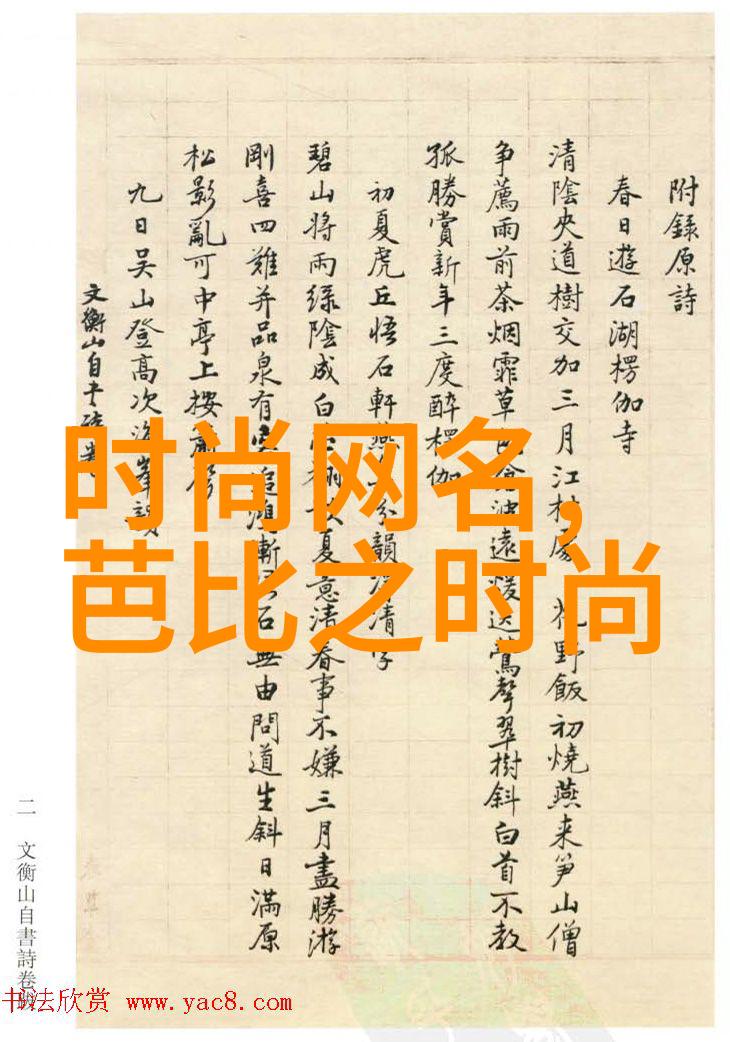 附錄原詩
春日遊石湖楞伽寺
清陰夾道樹交加三月江村 花野飯初燒燕来笋山僧
争薦雨前茶烟霏草 遠煖送鶯聲翠樹斜白首不教
孤勝賞新年三度醉楞伽
初夏虎丘悟石軒燕 分韻 清字
碧山将雨緑陰成白 夏意清春事不嫌三月盡勝游
剛喜四難并品泉有 石無由問道生斜日滿原
松影亂可中亭上按
九日吳山登高次 峯韻
文衡山自書
时尚网名,
芭比之时尚
二 文衡山自書詩卷跋
书法欣赏 www.yac8.com